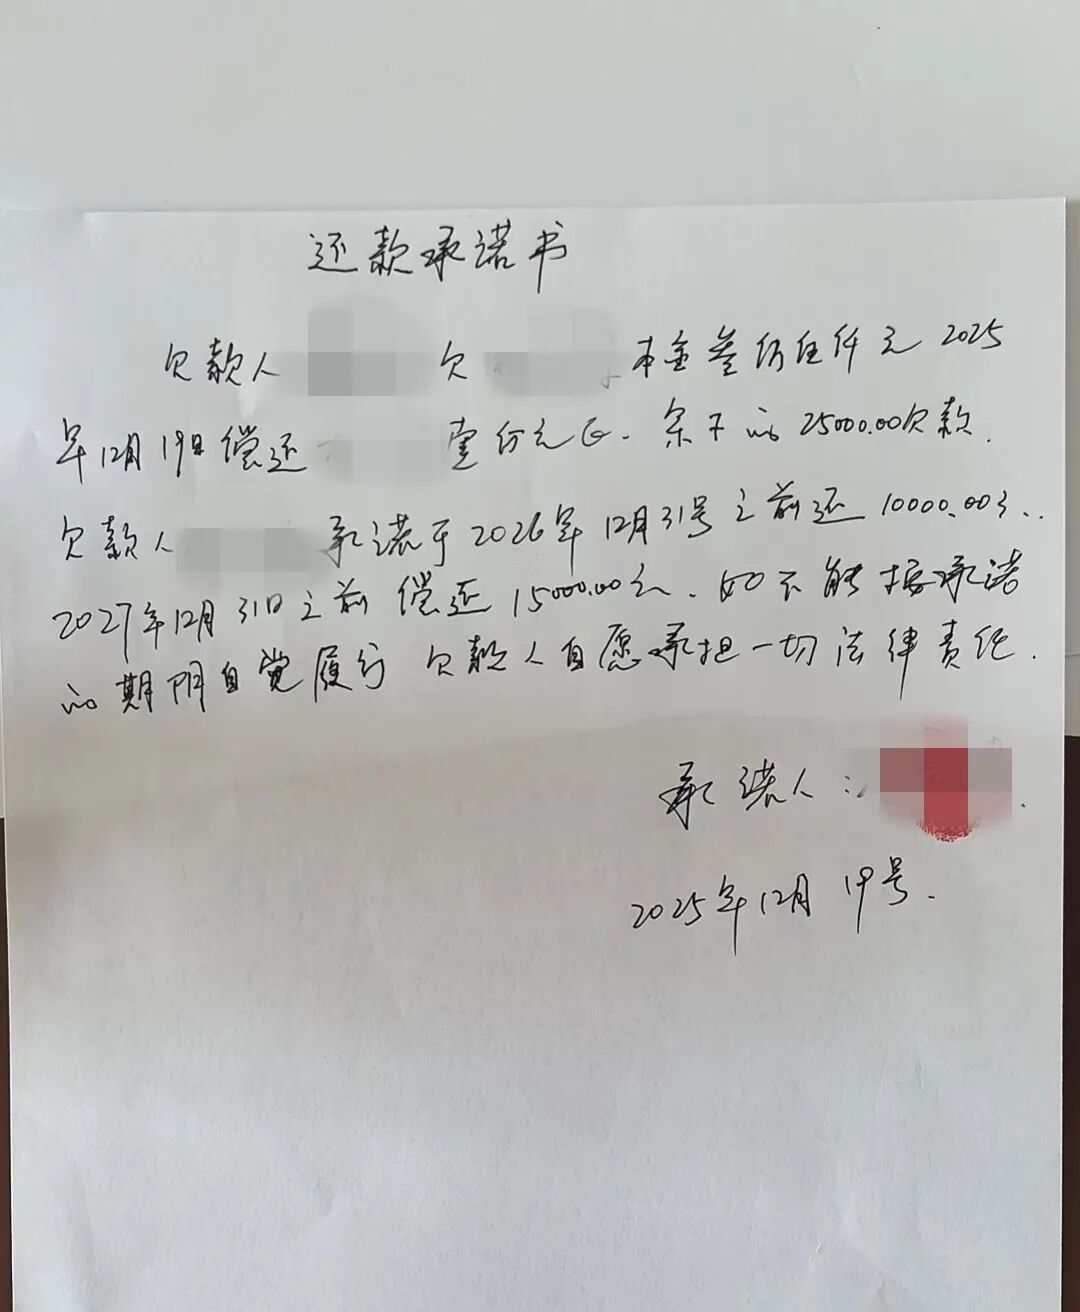 还款承诺书
欠款人 欠 本金叁仿伍仟元 2025
年12月19日偿还 壹仿元正. 余下的25000.00欠款.
欠款人 承诺于2026年12月31号之前还10000.00元..
2027年12月31日之前偿还15000.00元. 如不能按承诺
的期限自觉履行 欠款人自愿承担一切法律责任.
承诺人:
2025年12月19号.